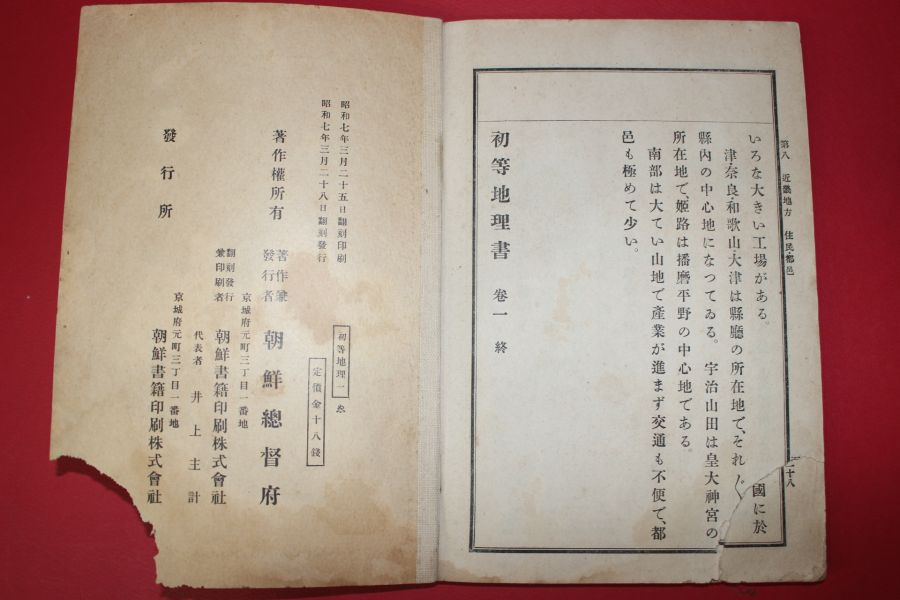 第八 近畿地方 住民・都邑
二十八
國に於
いろな大きい工場がある。
津・奈良・和歌山・大津は縣廳の所在地で、それ〴〵
縣内の中心地になつてゐる。 宇治山田は皇大神宮の
所在地で、姫路は播磨平野の中心地である
南部は大てい山地で產業が進まず交通も不便で、都
邑も極めて少い。
初等地理書 卷一 終
昭和七年三月二十五日翻刻印刷
昭和七年三月二十八日翻刻發行
初等地理一
定價金十八錢
著作權所有
著作兼發行者 朝鮮總督府
京城府元町三丁目一番地
翻刻發行兼印刷者 朝鮮書籍印刷株式會社
代表者 井上主計
發行所
京城府元町三丁目一番地
朝鮮書籍印刷株式會社